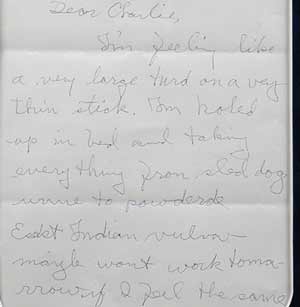 Dear Charlie,
I'm feeling like
a very large turd on a very
thin stick. I'm holed
up in bed and taking
everything from sled dog
urine to powderde
East Indian vulva—
maybe wont work toma-
rrow if I feel the same